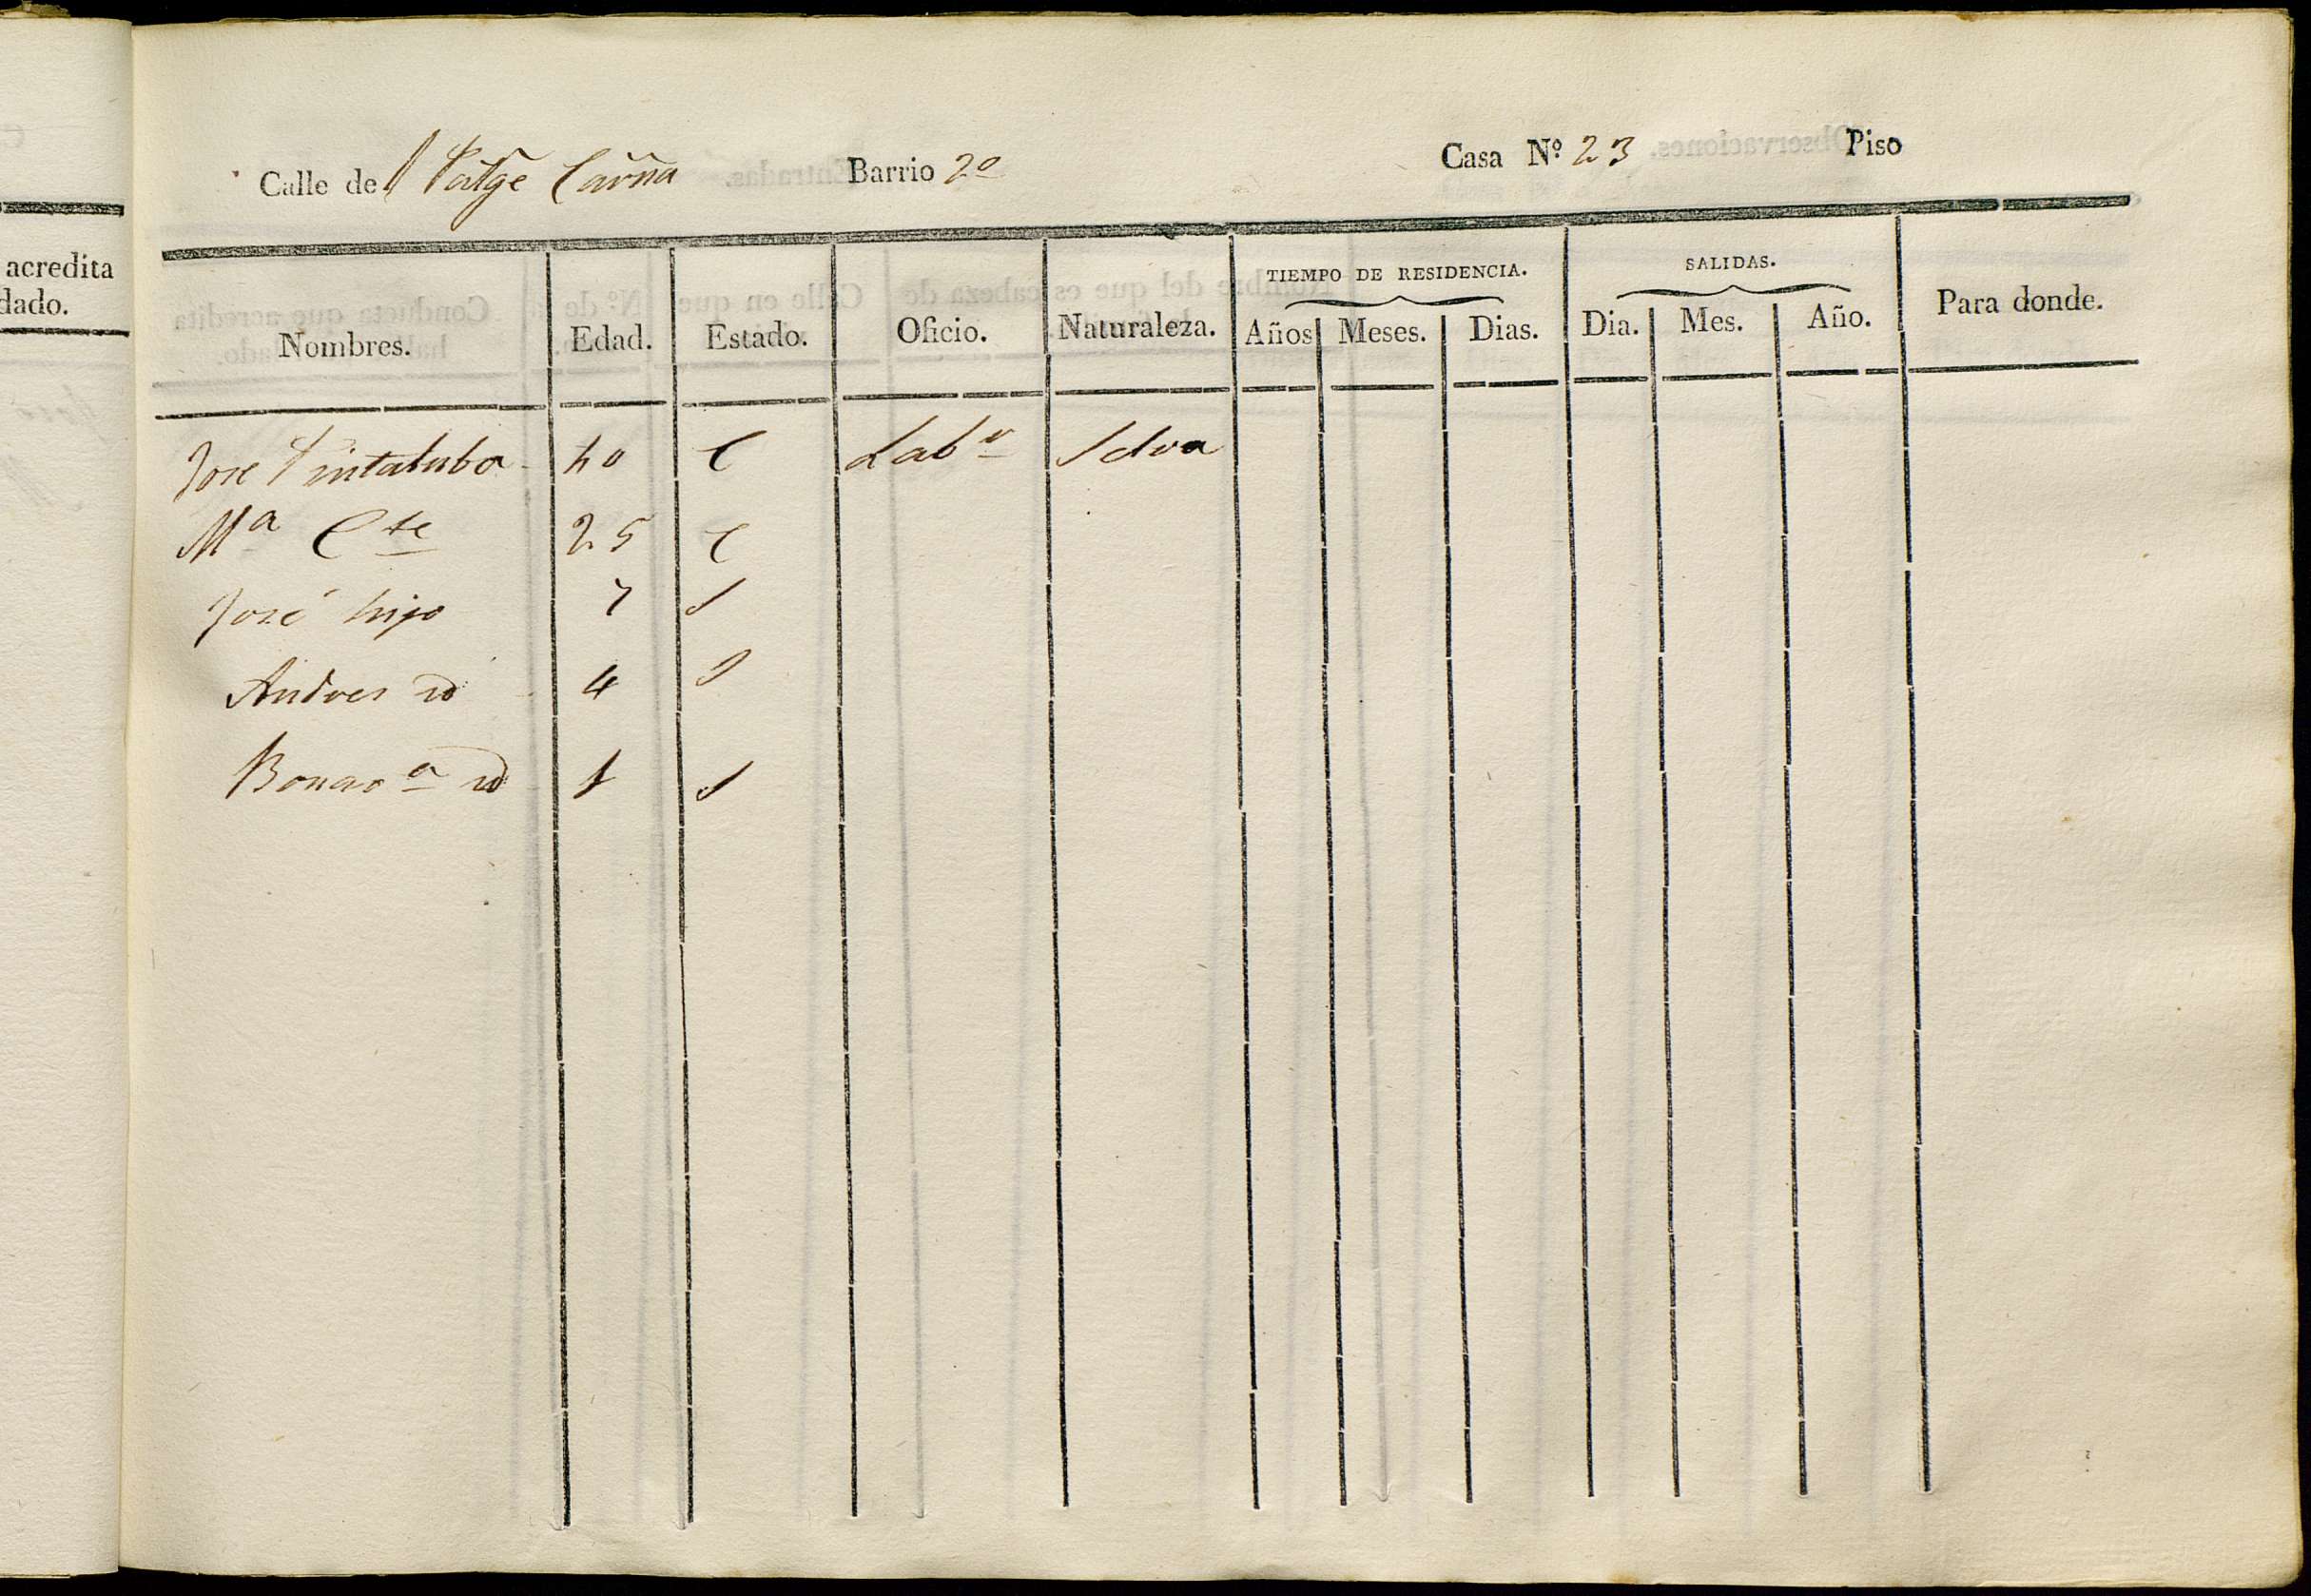 acredita
dado.
Calle del Patge Barrio 2º Casa Nº 23 Piso
TIEMPO DE RESIDENCIA. SALIDAS.
Nombres. Edad. Estado. Oficio. Naturaleza. Años Meses. Dias. Dia. Mes. Año. Para donde.
Jose Pintaluba 40 C Labr Selva
Mª Cte 25 C
José hijo 7 S
Andres id 4 S
Bonavª id 1 S